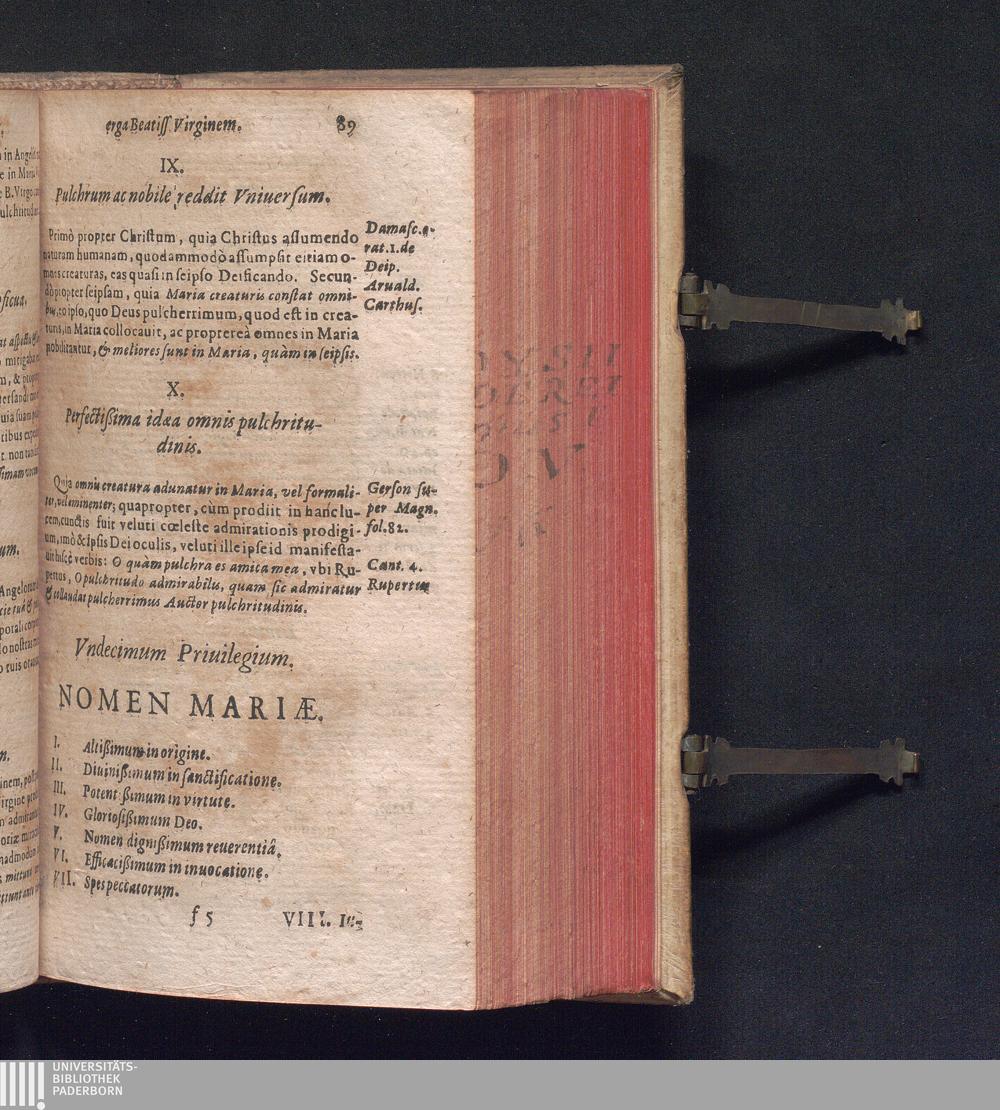 erga Beatiſſ. Virginem. 89
IX.
Pulchrum ac nobile reddit Vniuerſum.
Primò propter Chriſtum, quia Chriſtus aſſumendo
naturam humanam, quodammodò aſſumpſit etiam o-
mnes creaturas, eas quaſi in ſeipſo Deificando. Secun-
dò propter ſeipſam, quia Maria creaturis conſtat omni-
bus, eo ipſo, quo Deus pulcherrimum, quod eſt in crea-
turis, in Maria collocauit, ac proptereà omnes in Maria
nobilitantur, & meliores ſunt in Maria, quàm in ſeipſis.
Damaſc. o-
rat. 1. de
Deip.
Aruald.
Carthuſ.
X.
Perfectißima idæa omnis pulchritu-
dinis.
Quia omnis creatura adunatur in Maria, vel formali-
ter, vel eminenter; quapropter, cùm prodiit in hanc lu-
cem, cunctis fuit veluti cœleſte admirationis prodigi-
um, imò & ipſis Dei oculis, veluti ille ipſe id manifeſta-
uit hiſce verbis: O quàm pulchra es amica mea, vbi Ru-
pertus, O pulchritudo admirabilis, quam ſic admiratur
& collaudat pulcherrimus Auctor pulchritudinis.
Gerſon ſu-
per Magn.
fol. 82.
Cant. 4.
Rupertus
Vndecimum Priuilegium.
NOMEN MARIÆ.
I. Altißimum in origine.
II. Diuinißimum in ſanctificatione.
III. Potentißimum in virtute.
IV. Glorioſißimum Deo.
V. Nomen dignißimum reuerentiâ.
VI. Efficacißimum in inuocatione.
VII. Spes peccatorum.
f 5 VIII. Iu-
UNIVERSITÄTS-
BIBLIOTHEK
PADERBORN